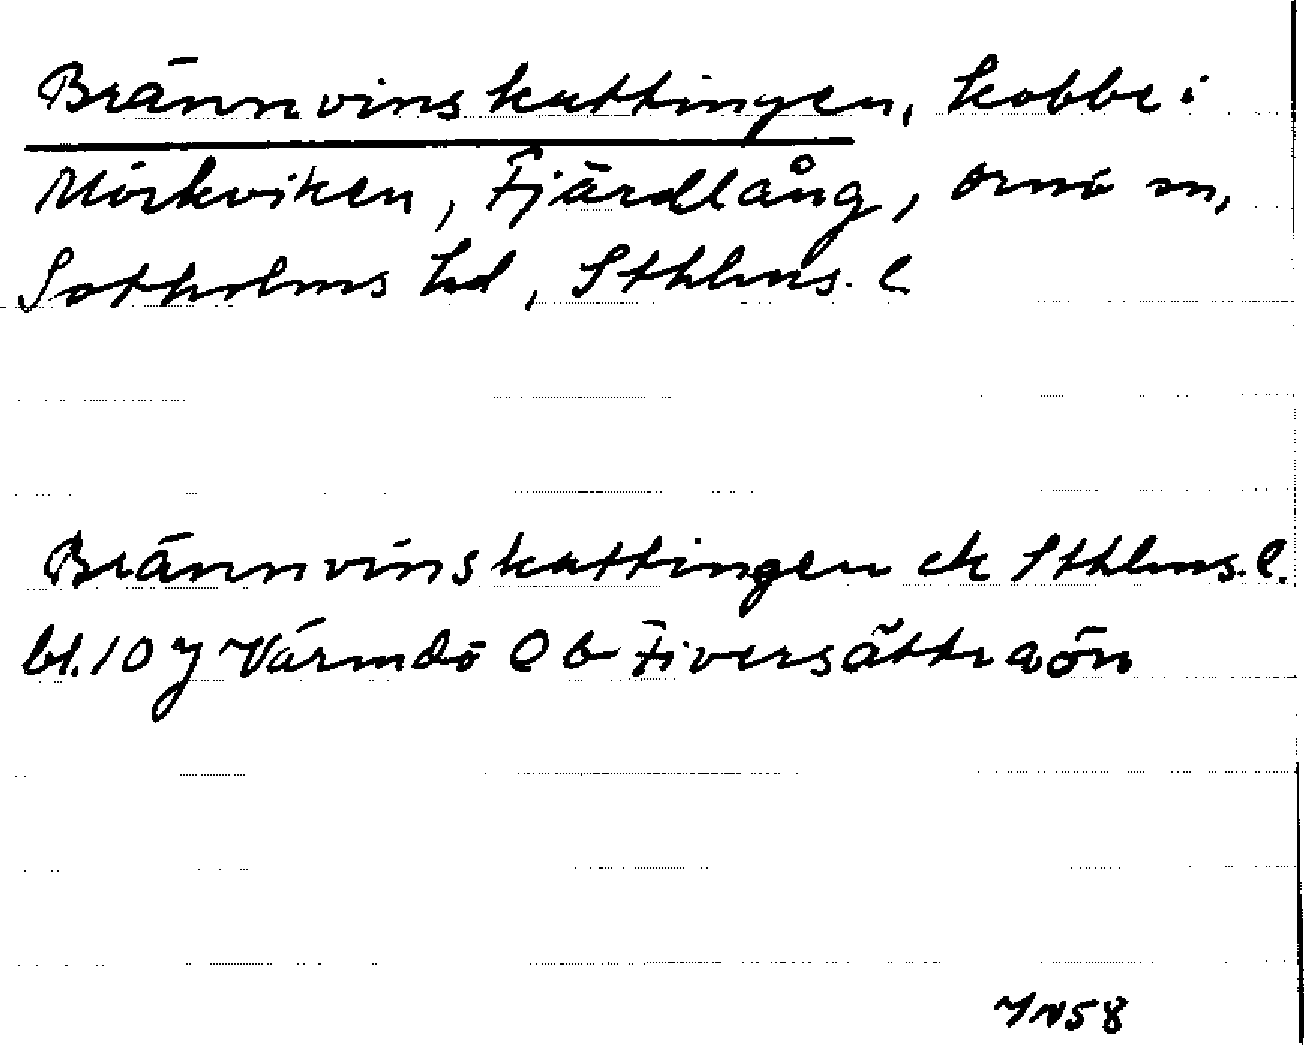 Brännvinskuttingen, kobbe i
Mörkviken, Fjärdlång, Ornö sn,
Sotholms hd, Sthlms. l
Brännvinskuttingen ek Sthlms. l.
bl. 10 y Värmdö Ob Fiversättraön
YN58